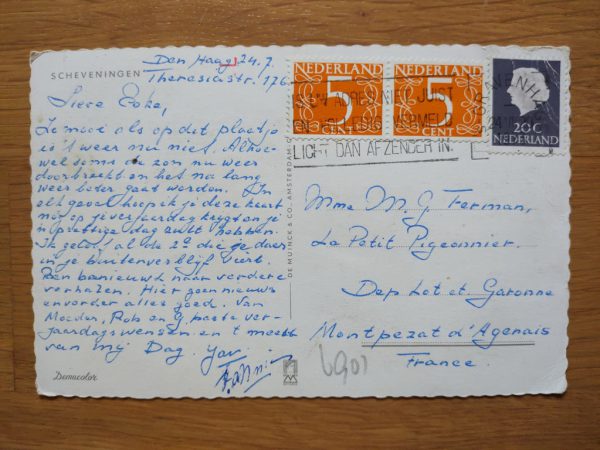 SCHEVENINGEN
Den Haag, 24.7.
Theresiastr. 176
Lieve
Zo mooi als op dit plaatje
is 't weer nu niet. Alhoe-
wel soms de zon nu weer
doorbreekt en het na lang
weer beter gaat worden. In
elk geval hoop ik je deze kaart
nog op je verjaardag krijgt en je
'n prettige dag zult hebben.
Ik geloof al de 2e die je daar
in je buitenverblijf viert.
Ben benieuwd naar verdere
verhalen. Hier geen nieuws
en verder alles goed. Van
Moeder, Rob en G. beste ver-
jaardagswensen en 't meest
van mij Dag.
Demucolor
DE MUINCK & CO. AMSTERDAM
NEDERLAND
5
CENT
NEDERLAND
5
CENT
20C
NEDERLAND
UW ADRES NIET JUIST
VERMELD
LICHT DAN AFZENDER IN
Mme M. G. Ferman,
La Petit Pigeonnier.
Dep Lot et Garonne
Montpezat d'Agenais
France.
6901